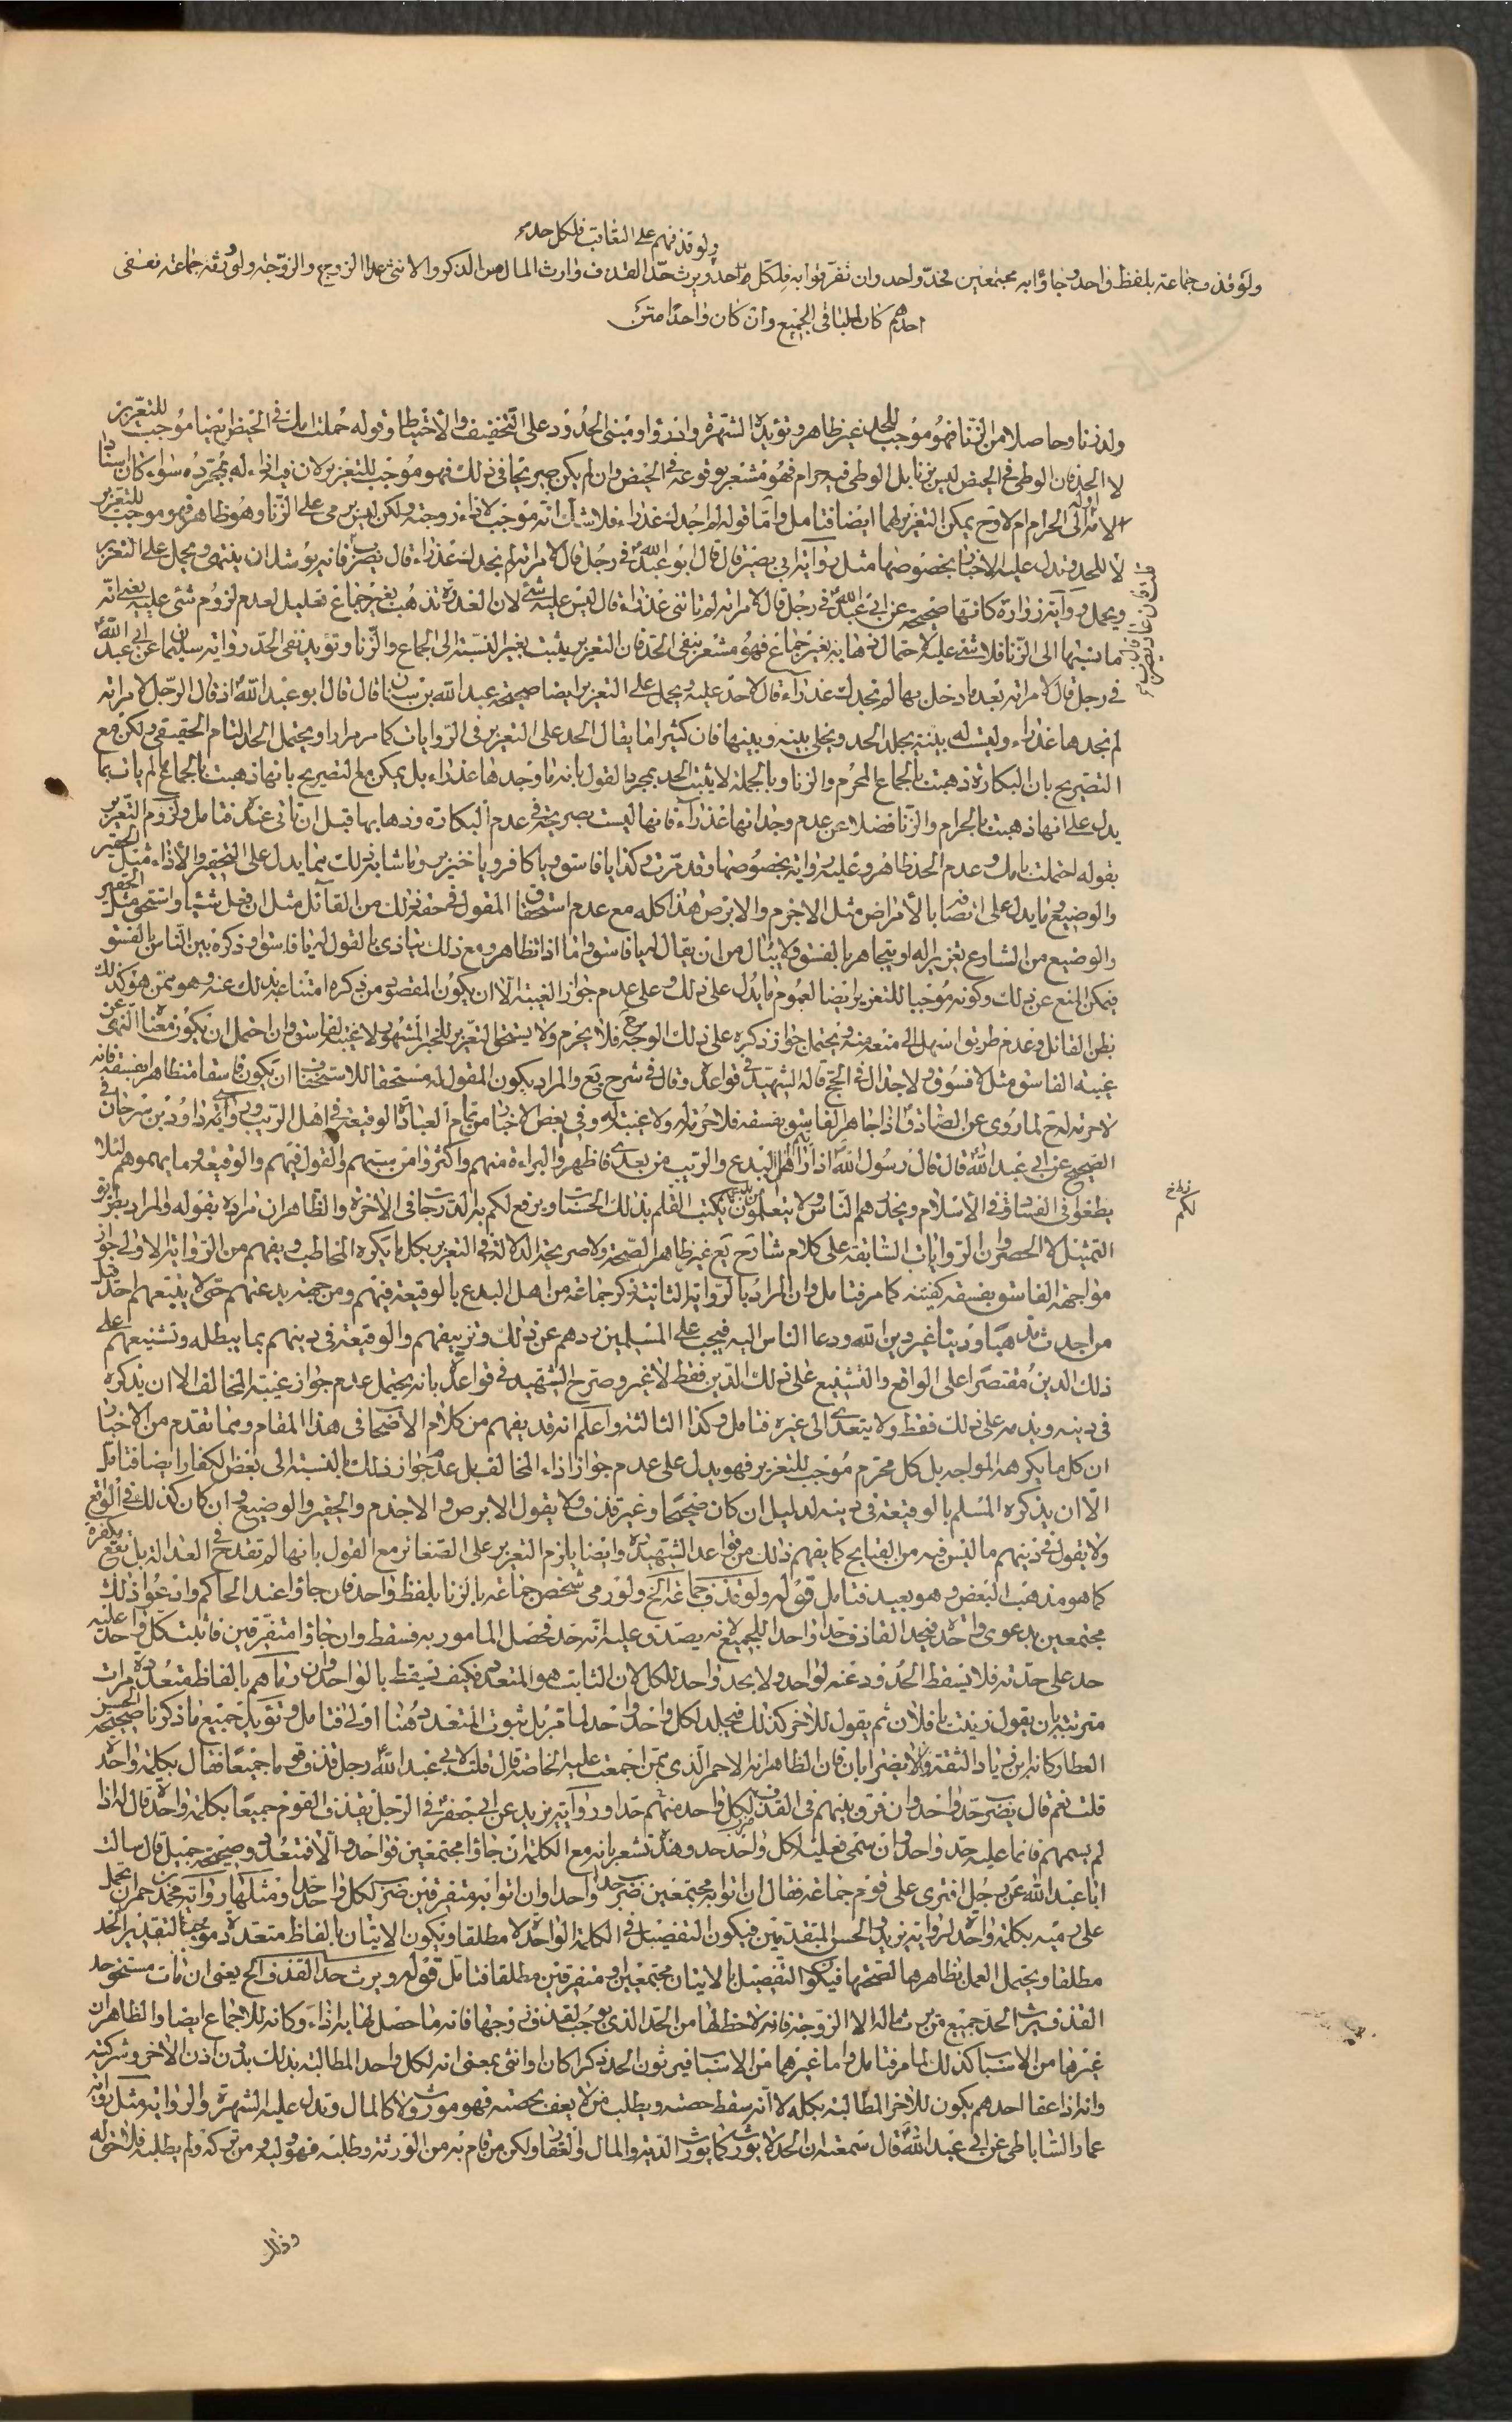 ولو قذفهم على التعاقب فلكل حد
ولو قذف جماعة بلفظ واحد وجاؤا به مجتمعين فحد واحد وان تفرقوا به فلكل واحد ويرث حد القذف وارث المال من الذكر والانثى عدا الزوج والزوجة ولو ورثه جماعة فعفى
احدهم كان للباقي الجميع وان كان واحدا
ولد زنا وحاصلا من الزنا فهو موجب للحد غير ظاهر ويؤيده الشهرة وادرؤا ومبنى الحدود على التخفيف والاحتياط وقوله حملت امك في الحيض ايضا موجب للتعزير
لا الحد فان الوطي في الحيض ليس بزنا بل الوطي فيه حرام فهو مشعر بوقوعه في الحيض وان لم يكن صريحا في ذلك فهو موجب للتعزير لان فيه ايذاء له بمجرده سواء كان اسنادا
الى الحرام ام لا وح يمكن التعزير لهما ايضا فتامل واما قوله لم اجدك عذراء فلا شك انه موجب لايذاء زوجته ولكن ليس برمي على الزنا وهو ظاهر فهو موجب للتعزير
لا للحد وتدل عليه الاخبار بخصوصها مثل رواية ابي بصير قال قال ابو عبد الله في رجل قال لامراته لم اجدك عذراء قال يضرب فانه يوشك ان ينتهي ويحمل على التعزير
ويحمل رواية زرارة كانها صحيحة عن ابي عبد الله في رجل قال لامراته لم تاتني عذراء قال ليس عليه شيء لان العذرة تذهب بغير جماع تعليل لعدم لزوم شيء عليه يعني انه
ما نسبها الى الزنا فلا شيء عليه لاحتمال ذهابه بغير جماع فهو مشعر بنفي الحد فان التعزير يثبت بغير النسبة الى الجماع والزنا ويؤيد نفي الحد رواية سليمان عن ابي عبد الله
في رجل قال لامراته بعد ما دخل بها لم اجدك عذراء قال لا حد عليه ويحمل على التعزير ايضا صحيحة عبد الله بن سنان قال قال ابو عبد الله اذا قال الرجل لامراته
لم نجدها عذراء وليست له بينة يجلد الحد ويخلى بينه وبينها فان كثيرا ما يقال الحد على التعزير في الروايات كما مر مرارا ويحتمل الحد التام الحقيقي ولكن مع
التصريح بان البكارة ذهبت بالجماع المحرم والزنا وبالجملة لا يثبت الحد بمجرد القول بانه ما وجدها عذراء بل يمكن مع التصريح بانها ذهبت بالجماع لم يات بما
يدل على انها ذهبت بالحرام والزنا فضلا عن عدم وجدانها عذراء فانها ليست بصريحة في عدم البكارة وذهابها قبل ان تاتي عنده فتامل ولزوم التعزير
بقوله احتلمت بامك وعدم الحد ظاهر وعليه رواية بخصوصها وقد مرت وكذا يا فاسق ويا كافر ويا خنزير وما شابه ذلك مما يدل على التحقير والاذاء مثل الحقير
والوضيع وما يدل على اتصافه بالأمراض مثل الاجذم والابرص هذا كله مع عدم استحقاق المقول في حقه ذلك من القائل مثل ان فعل شيئا واستحق مثل التحقير
والوضيع من الشارع تعزيرا له او يتجاهر بالفسق ولا يبال من ان يقال له يا فاسق واما اذا تظاهر ومع ذلك يتاذى بالقول له يا فاسق وذكره بين الناس بالفسق
فيمكن المنع عن ذلك وكونه موجبا للتعزير ايضا لعموم ما يدل على ذلك وعلى عدم جواز الغيبة الا ان يكون المقصود من ذكره امتناعه بذلك عنه وهو ممن هو كذلك
بظن القائل وعدم طريق اسهل الى منعه منه ويحتمل جواز ذكره على ذلك الوجه فلا يحرم ولا يستحق التعزير للخبر المشهور لا غيبة لفاسق وان احتمل ان يكون معناه النهي عن
غيبة الفاسق مثل لا فسوق ولا جدال في الحج قاله الشهيد في قواعده وقال في شرح يع والمراد بكون المقول له مستحقا للاستخفاف ان يكون فاسقا متظاهرا بفسقه فانه
لا حرمة له ح لما روى عن الصادق اذا جاهر الفاسق بفسقه فلا حرمة له ولا غيبة له وفي بعض الاخبار من تمام العبادة الوقيعة في اهل الريب وروى داود بن سرحان في
الصحيح عن ابي عبد الله قال قال رسول الله اذا رايتم اهل البدع والريب من بعدي فاظهروا البراءة منهم واكثروا من سبهم والقول فيهم والوقيعة وما يهموهم لئلا
يطغوا في الفساد في الاسلام ويحذرهم الناس ولا يتعلمون من بدعهم يكتب الله لكم بذلك الحسنات ويرفع لكم به الدرجات في الآخرة والظاهر ان مراده بقوله والمراد بطريق
التمثيل لا الحصر وان الروايات السابقة على كلام شارح يع غير ظاهر الصحة ولا صريحة الدلالة في التعزير بكل ما يكره المخاطب ويفهم من الرواية الاولى جواز
مواجهة الفاسق بفسقه كغيبته كما مر فتامل وان المراد بالرواية الثانية ذكر جماعة من اهل البدع بالوقيعة فيهم ومن جهة بدعتهم حتى لا يتبعهم احد قبل
من احدث مذهبا ودينا غير دين الله ودعا الناس اليه فيجب على المسلمين ردهم عن ذلك وتزييفهم والوقيعة في دينهم بما يبطله وتشنيعهم على
ذلك الدين مقتصرا على الواقع والتشنيع على ذلك الدين فقط لا غير وصرح الشهيد في قواعده بانه يحتمل عدم جواز غيبة المخالف الا ان يذكره
في دينه ويذمه على ذلك فقط ولا يتعدى الى غيره فتامل وكذا الثالثة واعلم انه قد يفهم من كلام الاصحاب في هذا المقام ومما تقدم من الاخبار
ان كل ما يكرهه المواجه بل كل محرم موجب للتعزير فهو يدل على عدم جواز اذاء المخالف بل عدم جواز ذلك بالنسبة الى بعض الكفار ايضا فتامل
الا ان يذكره المسلم بالوقيعة في دينه لدليل ان كان صحيحا وغير قذف ولا يقول الابرص والاجذم والحقير والوضيع وان كان كذلك في الواقع
ولا يقول في دينهم ما ليس فيه من القبايح كما يفهم ذلك من قواعد الشهيد وايضا يلزم التعزير على الصغائر مع القول بانها لم تقدح في العدالة بل تقع مكفرة
كما هو مذهب البعض وهو بعيد فتامل قوله ولو قذف جماعة الخ ولو رمى شخص جماعة بالزنا بلفظ واحد فان جاؤا عند الحاكم وادعوا ذلك
مجتمعين بدعوى واحدة فيحد القاذف حدا واحدا للجميع لانه يصدق عليه انه حد فحصل المامور به فسقط وان جاؤا متفرقين فاثبت كل واحد عليه
حد على حدته فلا يسقط الحدود عنه لواحد ولا بحد واحد للكل لان الثابت هو المتعدد فكيف يسقط بالواحد وان رماهم بالفاظ متعددة مرات
مترتبة بان يقول زنيت يا فلان ثم يقول للآخر كذلك فيجلد لكل واحد واحد لما مر بل ثبوت المتعدد هنا اولى فتامل ويؤيد جميع ما ذكرنا صحيحة الحسن
العطار كانه ابن زياد الثقة ولا يضر ابان فان الظاهر انه الاحمر الذي ممن اجمعت عليه الخاصة قال قلت لابي عبد الله رجل قذف قوما جميعا فقال بكلمة واحدة
قلت نعم قال يضرب حدا واحدا وان فرق بينهم في القذف ضرب لكل واحد منهم حدا ورواية بريد عن ابي جعفر في الرجل يقذف القوم جميعا بكلمة واحدة قال له اذا
لم يسمهم فانما عليه حد واحد وان سمى فعليه لكل واحد حد وهذه تشعر بانه مع الكلمة ان جاؤا مجتمعين فواحد والا فمتعدد وصحيحة جميل قال سالت
ابا عبد الله عن رجل افترى على قوم جماعة فقال ان اتوا به مجتمعين ضرب حدا واحدا وان اتوا به متفرقين ضرب لكل واحد حدا ومثلها رواية محمد بن حمران يحمل
على رميه بكلمة واحدة لرواية بريد والحسن المتقدمتين فيكون التفصيل في الكلمة الواحدة لا مطلقا ويكون الاتيان بالفاظ متعددة موجبا لتعدد الحد
مطلقا ويحتمل العمل بظاهرهما لصحتهما فيكون التفصيل بالاتيان مجتمعين او متفرقين مطلقا فتامل قوله ويرث حد القذف الخ يعني ان مات مستحق حد
القذف يرث الحد جميع من يرث ماله الا الزوجة فانه لا حظ لها من الحد الذي يوجب لقذف زوجها فانه ما حصل لها به اذاء وكانه للاجماع ايضا والظاهر ان
غيرها من الاسباب كذلك لما مر فتامل واما غيرهما من الانساب فيرثون الحد ذكرا كان او انثى بمعنى انه لكل واحد المطالبة بذلك بدون اذن الآخر وشركته
وانه اذا عفا احدهم يكون للآخر المطالبة بكله لا انه سقط حصته ويطلب من لا يعف بحصته فهو موروث ولا كالمال وتدل عليه الشهرة والرواية مثل رواية
عمار الساباطي عن ابي عبد الله قال سمعته ان الحد لا يورث كما يورث الدية والمال والعقار ولكن من قام به من الورثة وطلبه فهو وليه ومن تركه ولم يطلبه فلا حق له
وذلك